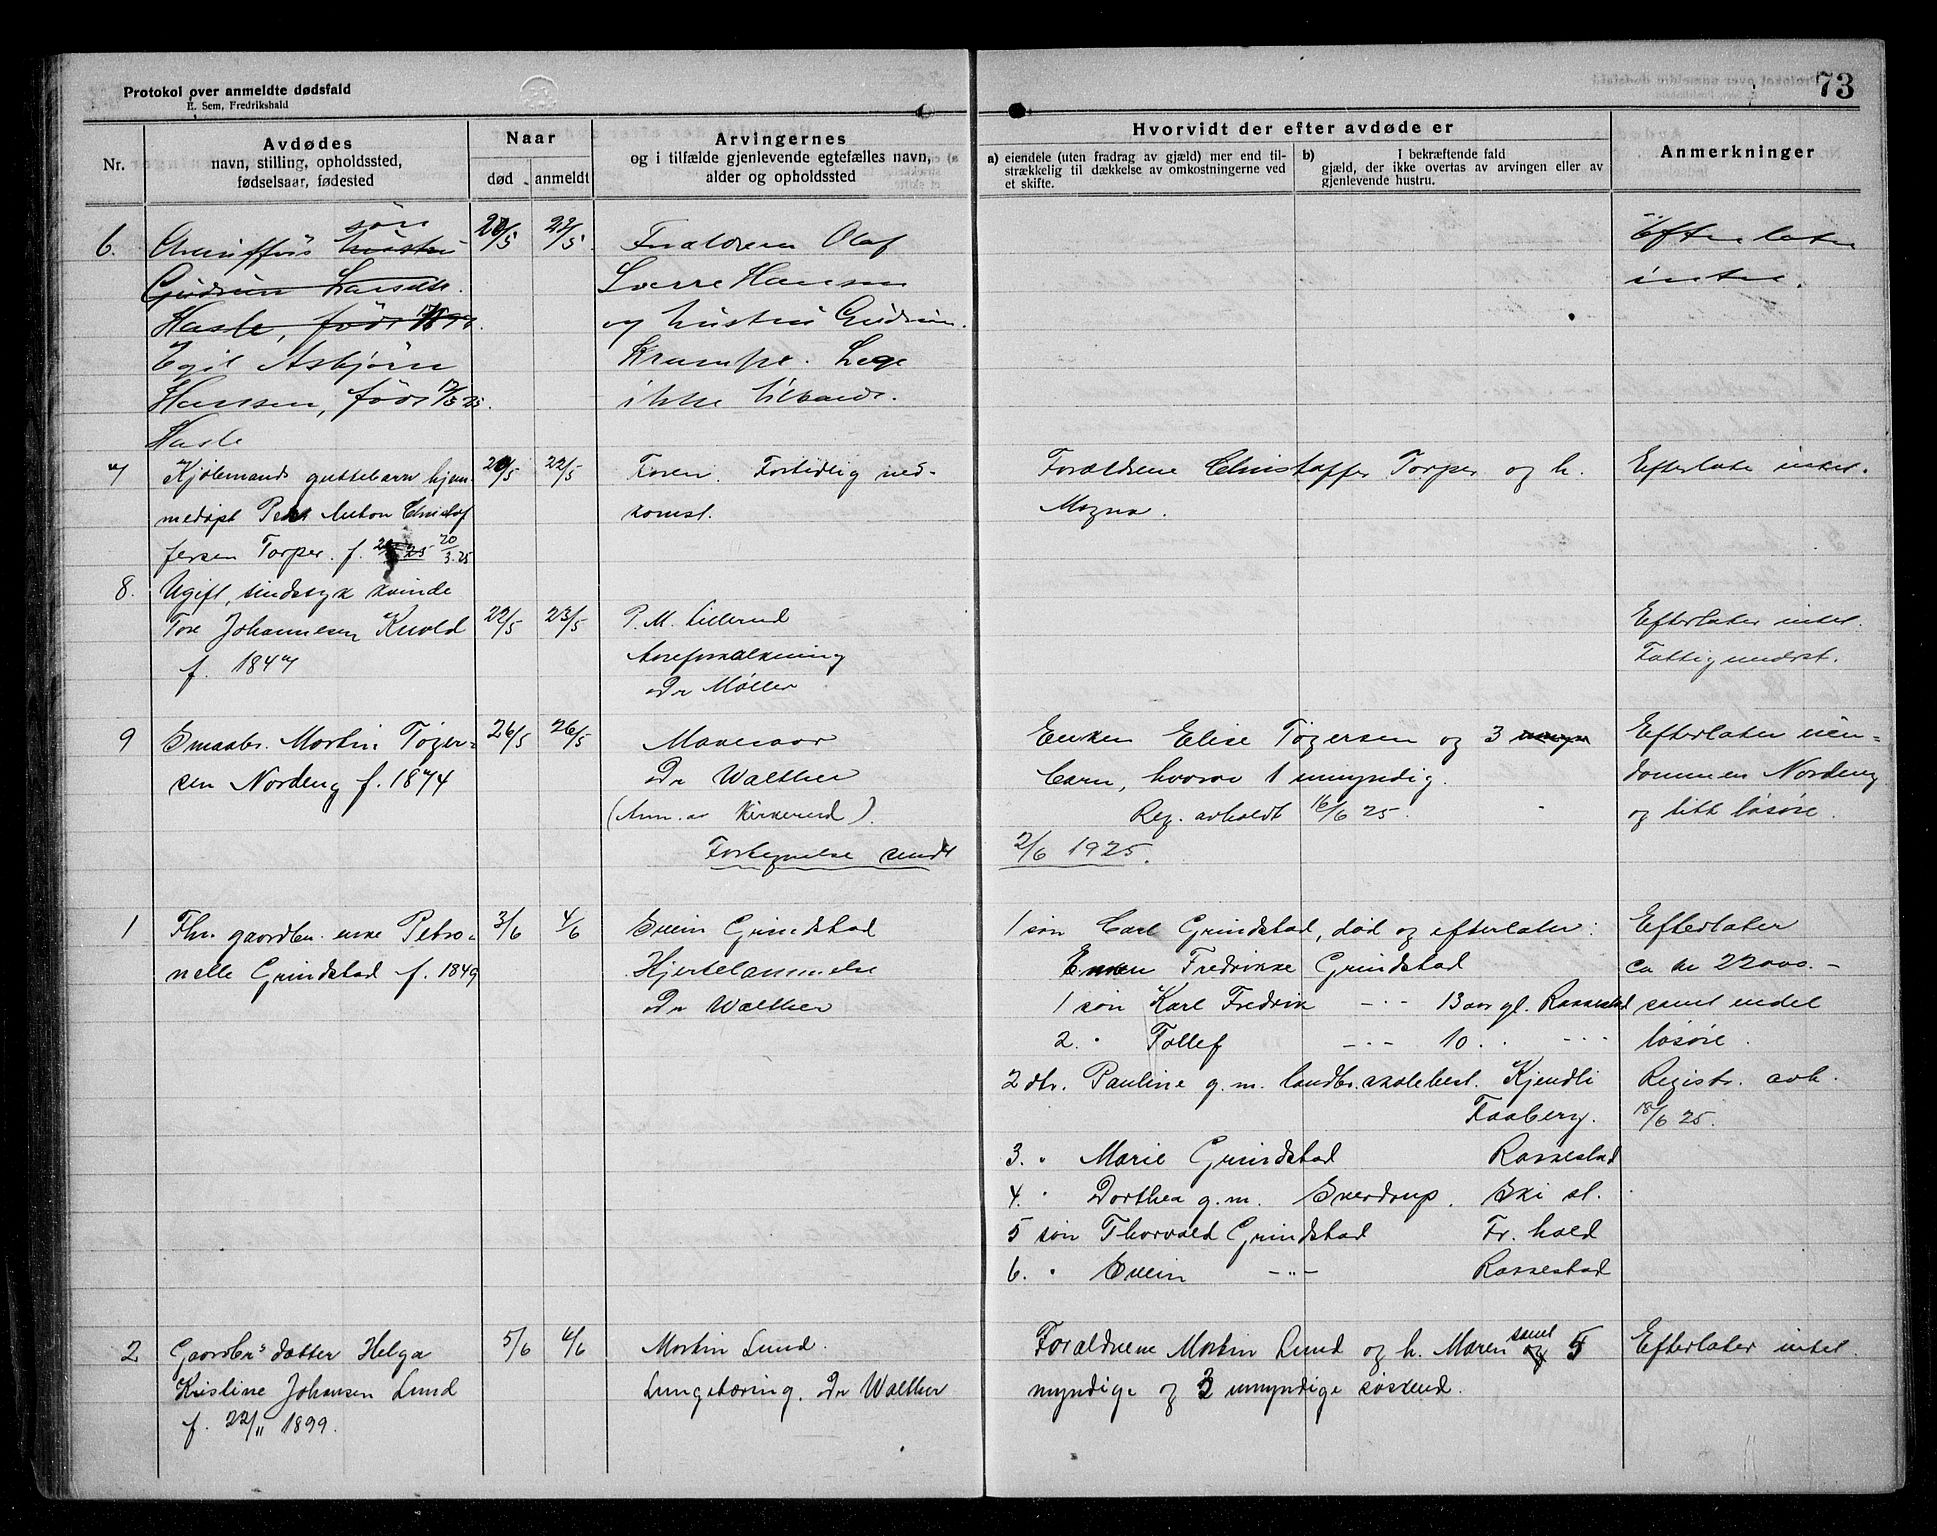 Protokol over anmeldte dødsfald
E. Sem, Fredrikshald
73
Nr.
Avdødes
navn, stilling, opholdssted,
fødselsaar, fødested
Naar
død
anmeldt
Arvingernes
og i tilfælde gjenlevende egtefælles navn,
alder og opholdssted
Hvorvidt der efter avdøde er
a) eiendele (uten fradrag av gjæld) mer end til-
strækkelig til dækkelse av omkostningerne ved
et skifte.
b) I bekræftende fald
gjæld, der ikke overtas av arvingen eller av
gjenlevende hustru.
Anmerkninger
6.
søn
hustru
Gudrun
Hasle, født
Egil Asbjørn
Hansen, født 17/3 25.
Hasle
20/5
22/5
Forældrene Olaf
Sverre Hansen
og hustru Gudrun
Krumpe. Læge
ikke tilkaldt.
Efterlater
intet.
7
Kjølemands guttebarn hjem-
medøpt Peter Anton Christof
fersen Torper. f. 20/3.25
20/5
22/5
Faren. Fortidlig ned-
komst.
Forældrene Christoffer Torper og h.
Magna.
Efterlate intet.
8.
Ugift, sindssyk kvinde
Tore Johannesen Kuold
f. 1847
22/5
23/5
P. M. Lillerud
Aareforkalkning
Dr Møller
Efterlater intet.
Fattigunderst.
9
Smaabr. Martin Tøger-
sen Nordeng f. 1874
26/5
26/5
Mavesaar
Dr Walther
(Anm. av Kirkerud).
Fortegnelse sendt
Enken Elise Tøgersen og 3
barn, hvorav 1 umyndig.
Reg. avholdt 16/6 25.
2/6 1925.
Efterlater eien-
dommen Nordeng
og litt løsøre.
1
Fhv. gaardbr. enke Petro-
nelle Grindstad f. 1849
3/6
4/6
Svein Grindstad
Hjertelammelse
Dr Walther
1 søn Carl Grindstad, død og efterlater:
Enken Fredrikke Grindstad
1 søn Karl Fredrik -"- 13 aar gl. Rakkestad
2. " Tollef -"- 10 " -"-
2 dtr. Pauline g.m. landbr.skolebest. Kjendli
Faaberg.
3. " Marie Grindstad Rakkestad
4. " Dorthea g.m. Sverdrup. Ski st.
5 søn Thorvald Grindstad Fr. hald
6. " Svein -"- Rakkestad
Efterlater
ca kr 22000.-
samt endel
løsøre.
Registr. avh.
18/6 25.
2
Gaardbr's datter Helga
Kristine Johansen Lund
f. 22/11 1899.
5/6
6/6
Martin Lund.
Lungetæring. Dr Walther
Forældrene Martin Lund og h. Maren samt 5
myndige og 3 umyndige søskend.
Efterlater intet.